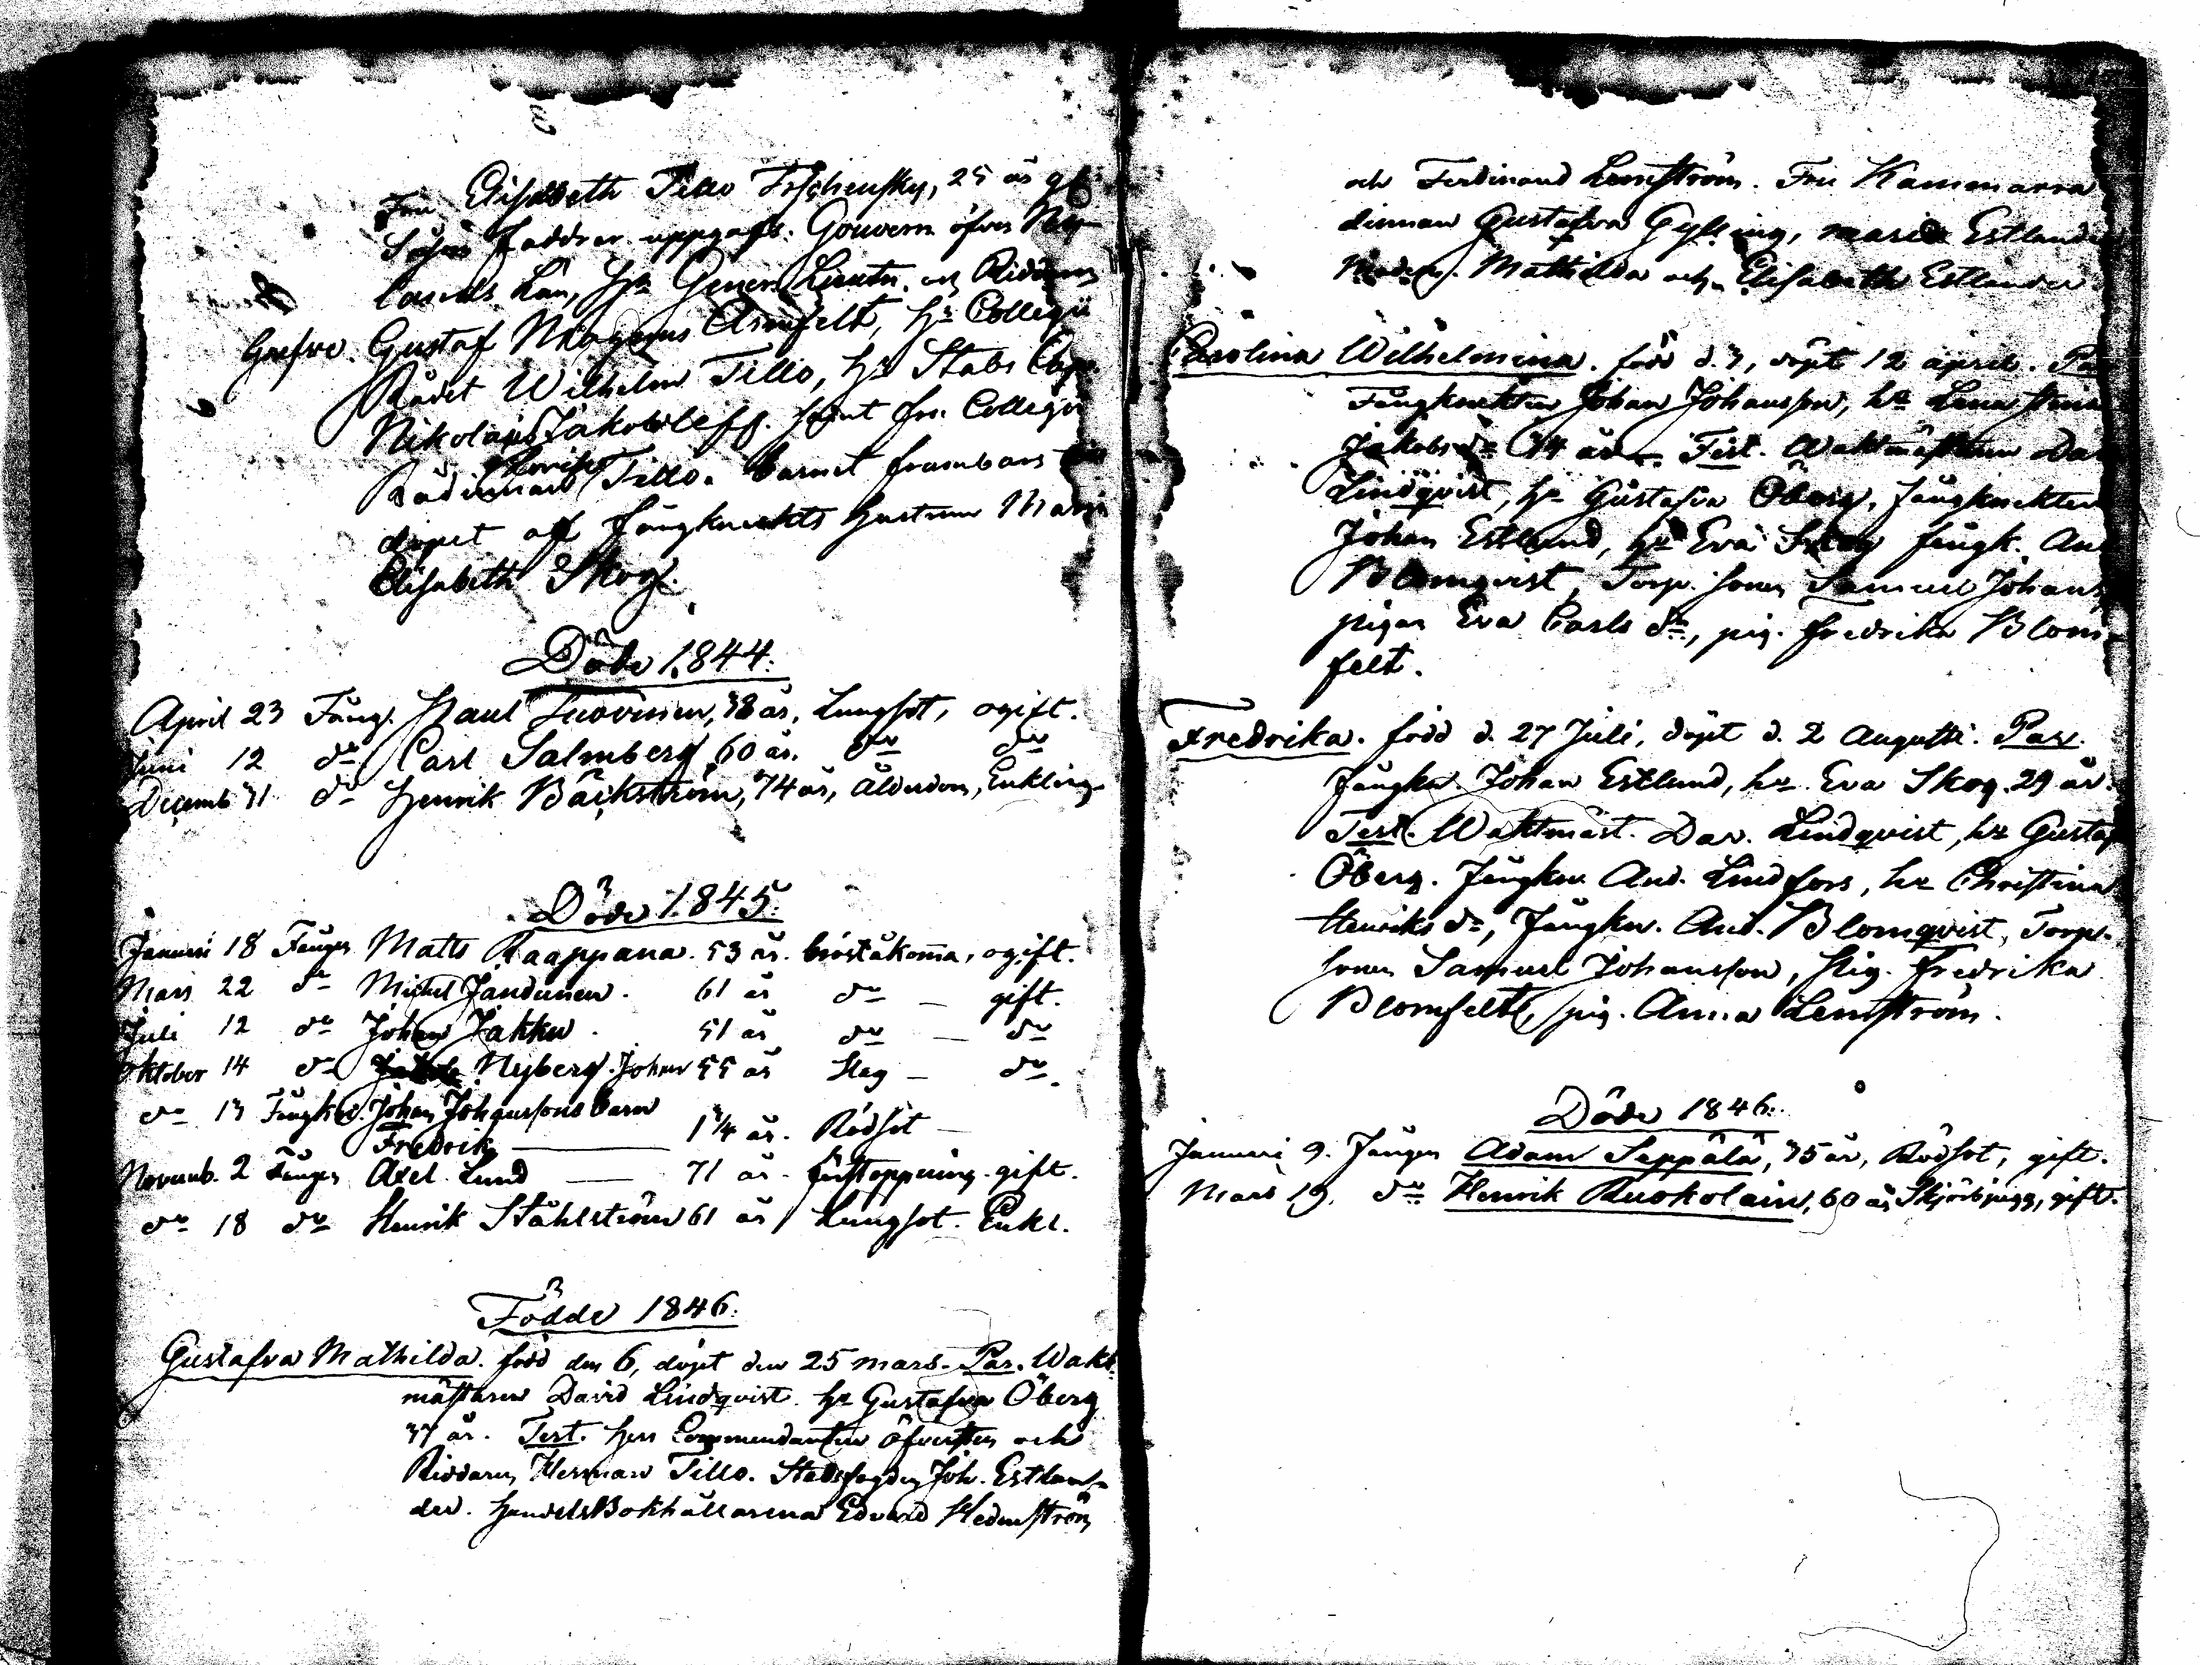 Fru Elisabeth Tillo Tschensky, 25 år gl
Såsom faddrar uppgafs: Gouvern öfver Ny-
lands Län, Hr Gener. Lieutn. och Riddaren
Grefve Gustaf Magnus Armfelt, Hr Collegii
Rådet Wilhelm Tillo, Hr Stabs Cap.
Nikolaus Jakowleff. samt fru Collegii
Rådinnan Tillo. barnet frambars till
dopet af fångknekts hustrun Maria
Elisabeth Skog.
Döde 1844:
April 23 Fång. Paul Tuovinen, 38 år, Lungsot, ogift.
Juni 12 do Carl Salmberg, 60 år. do do
Decemb 31 do Henrik Bäckström, 74 år, Ålderdom, Enkling
Döde 1845:
Januari 18 Fången Matts Raappana. 53 år. bröståkoma, ogift.
Mars 22 do Michel Jandunen. 61 år do — gift.
Juli 12 do Johan Jakku. 51 år do — do
Oktober 14 do Nyberg. Johan 55 år Slag — do.
do 13 Fångkn. Johan Johanssons barn
Fredrik — 1 3/4 år. Rödsot —
Novemb. 2 Fången Axel Lund — 71 år. förstoppning. gift.
do 18 do Henrik Ståhlström 61 år, Lungsot. Enkl.
Födde 1846:
Gustafva Mathilda. född den 6, döpt den 25 mars. Par. Wakt-
mästaren David Lindqvist. hu Gustafva Öberg
37 år. Test. Herr Commendanten Öfversten och
Riddaren Herman Tillo. Stadsfogden Joh. Estlan-
der. HandelsBokhållarena Edvard Hedenström
och Ferdinand Lemström. Fru Kammarrå
dinnan Gustafva Gylling, maria Estlander
Mathilda och Elisabeth Estlander
Carolina Wilhelmina. född d. 3, döpt 12 april. Par
Fångknekten Johan Johansson, hu Lena Stina
Jakobs dr 44 år. Test. Waktmästaren Dav
Lindqvist, hu Gustafva Öberg, fångknekten
Johan Estlund, hu Eva Skog fångk. And
Blomqvist, Torp. sonen Samuel Johans
pigan Eva Carls dr, pig. fredrika Blom-
felt.
Fredrika. född d. 27 Juli, döpt d. 2 Augusti. Par.
Fångkn. Johan Estlund, hu. Eva Skog. 29 år.
Test. Waktmäst. Dav. Lindqvist, hu Gustaf
Öberg. Fångkn. And. Lindfors, hu Christina
Henriks dr, Fångkn. And. Blomqvist, Torp.
sonen Samuel Johansson, Pig. Fredrika
Blomfelt, pig. Anna Lemström.
Döde 1846:
Januari 9. Fången Adam Seppälä, 35 år, Rödsot, gift.
Mars 19. do Henrik Ruokolain, 60 år Skjörbjugg, gift.